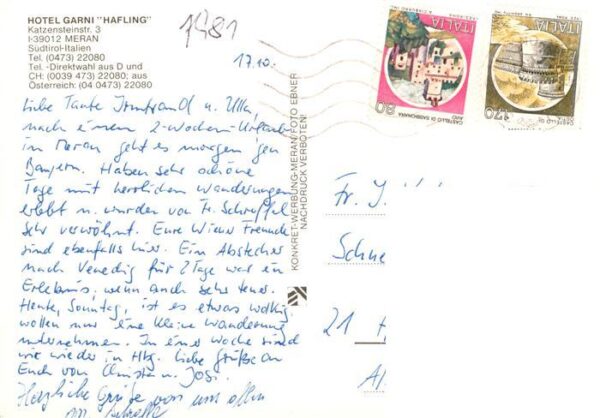 HOTEL GARNI "HAFLING"
Katzensteinstr. 3
I-39012 MERAN
Südtirol-Italien
Tel. (0473) 22080
Tel. -Direktwahl aus D und
CH: (0039 473) 22080; aus
Österreich: (04 0473) 22080
1981
17.10.
Liebe Tante Irmtraud u. Ulla,
nach einem 2-Wochen-Urlaub
in Meran geht es morgen gen
Bayern. Haben sehr schöne
Tage mit herrlichen Wanderungen
erlebt u. wurden von Fr.
sehr verwöhnt. Eure Wiener Freunde
sind ebenfalls hier. Ein Abstecher
nach Venedig für 2 Tage war ein
Erlebnis, wenn auch sehr teuer.
Heute, Sonntag, ist es etwas wolkig,
wollen nur eine kleine Wanderung
unternehmen. In einer Woche sind
wir wieder in Hbg. Liebe Grüße an
Euch von Christa u. Josi.
Herzliche Grüße von uns allen
KONKRET-WERBUNG-MERAN/FOTO EBNER
NACHDRUCK VERBOTEN!
ITALIA
80
ITALIA
170
Fr. I
Schne
21 H
A